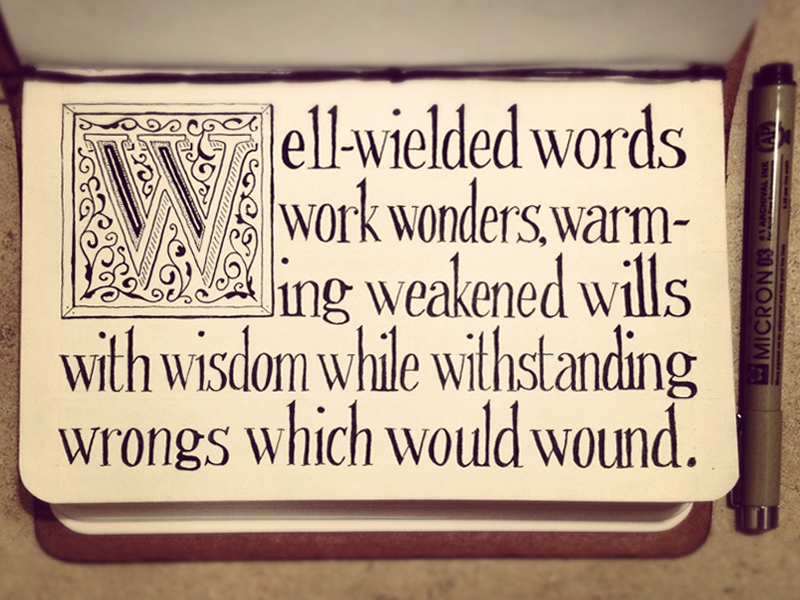 Well-wielded words
work wonders, warm-
ing weakened wills
with wisdom while withstanding
wrongs which would wound.
MICRON 03
ARCHIVAL INK